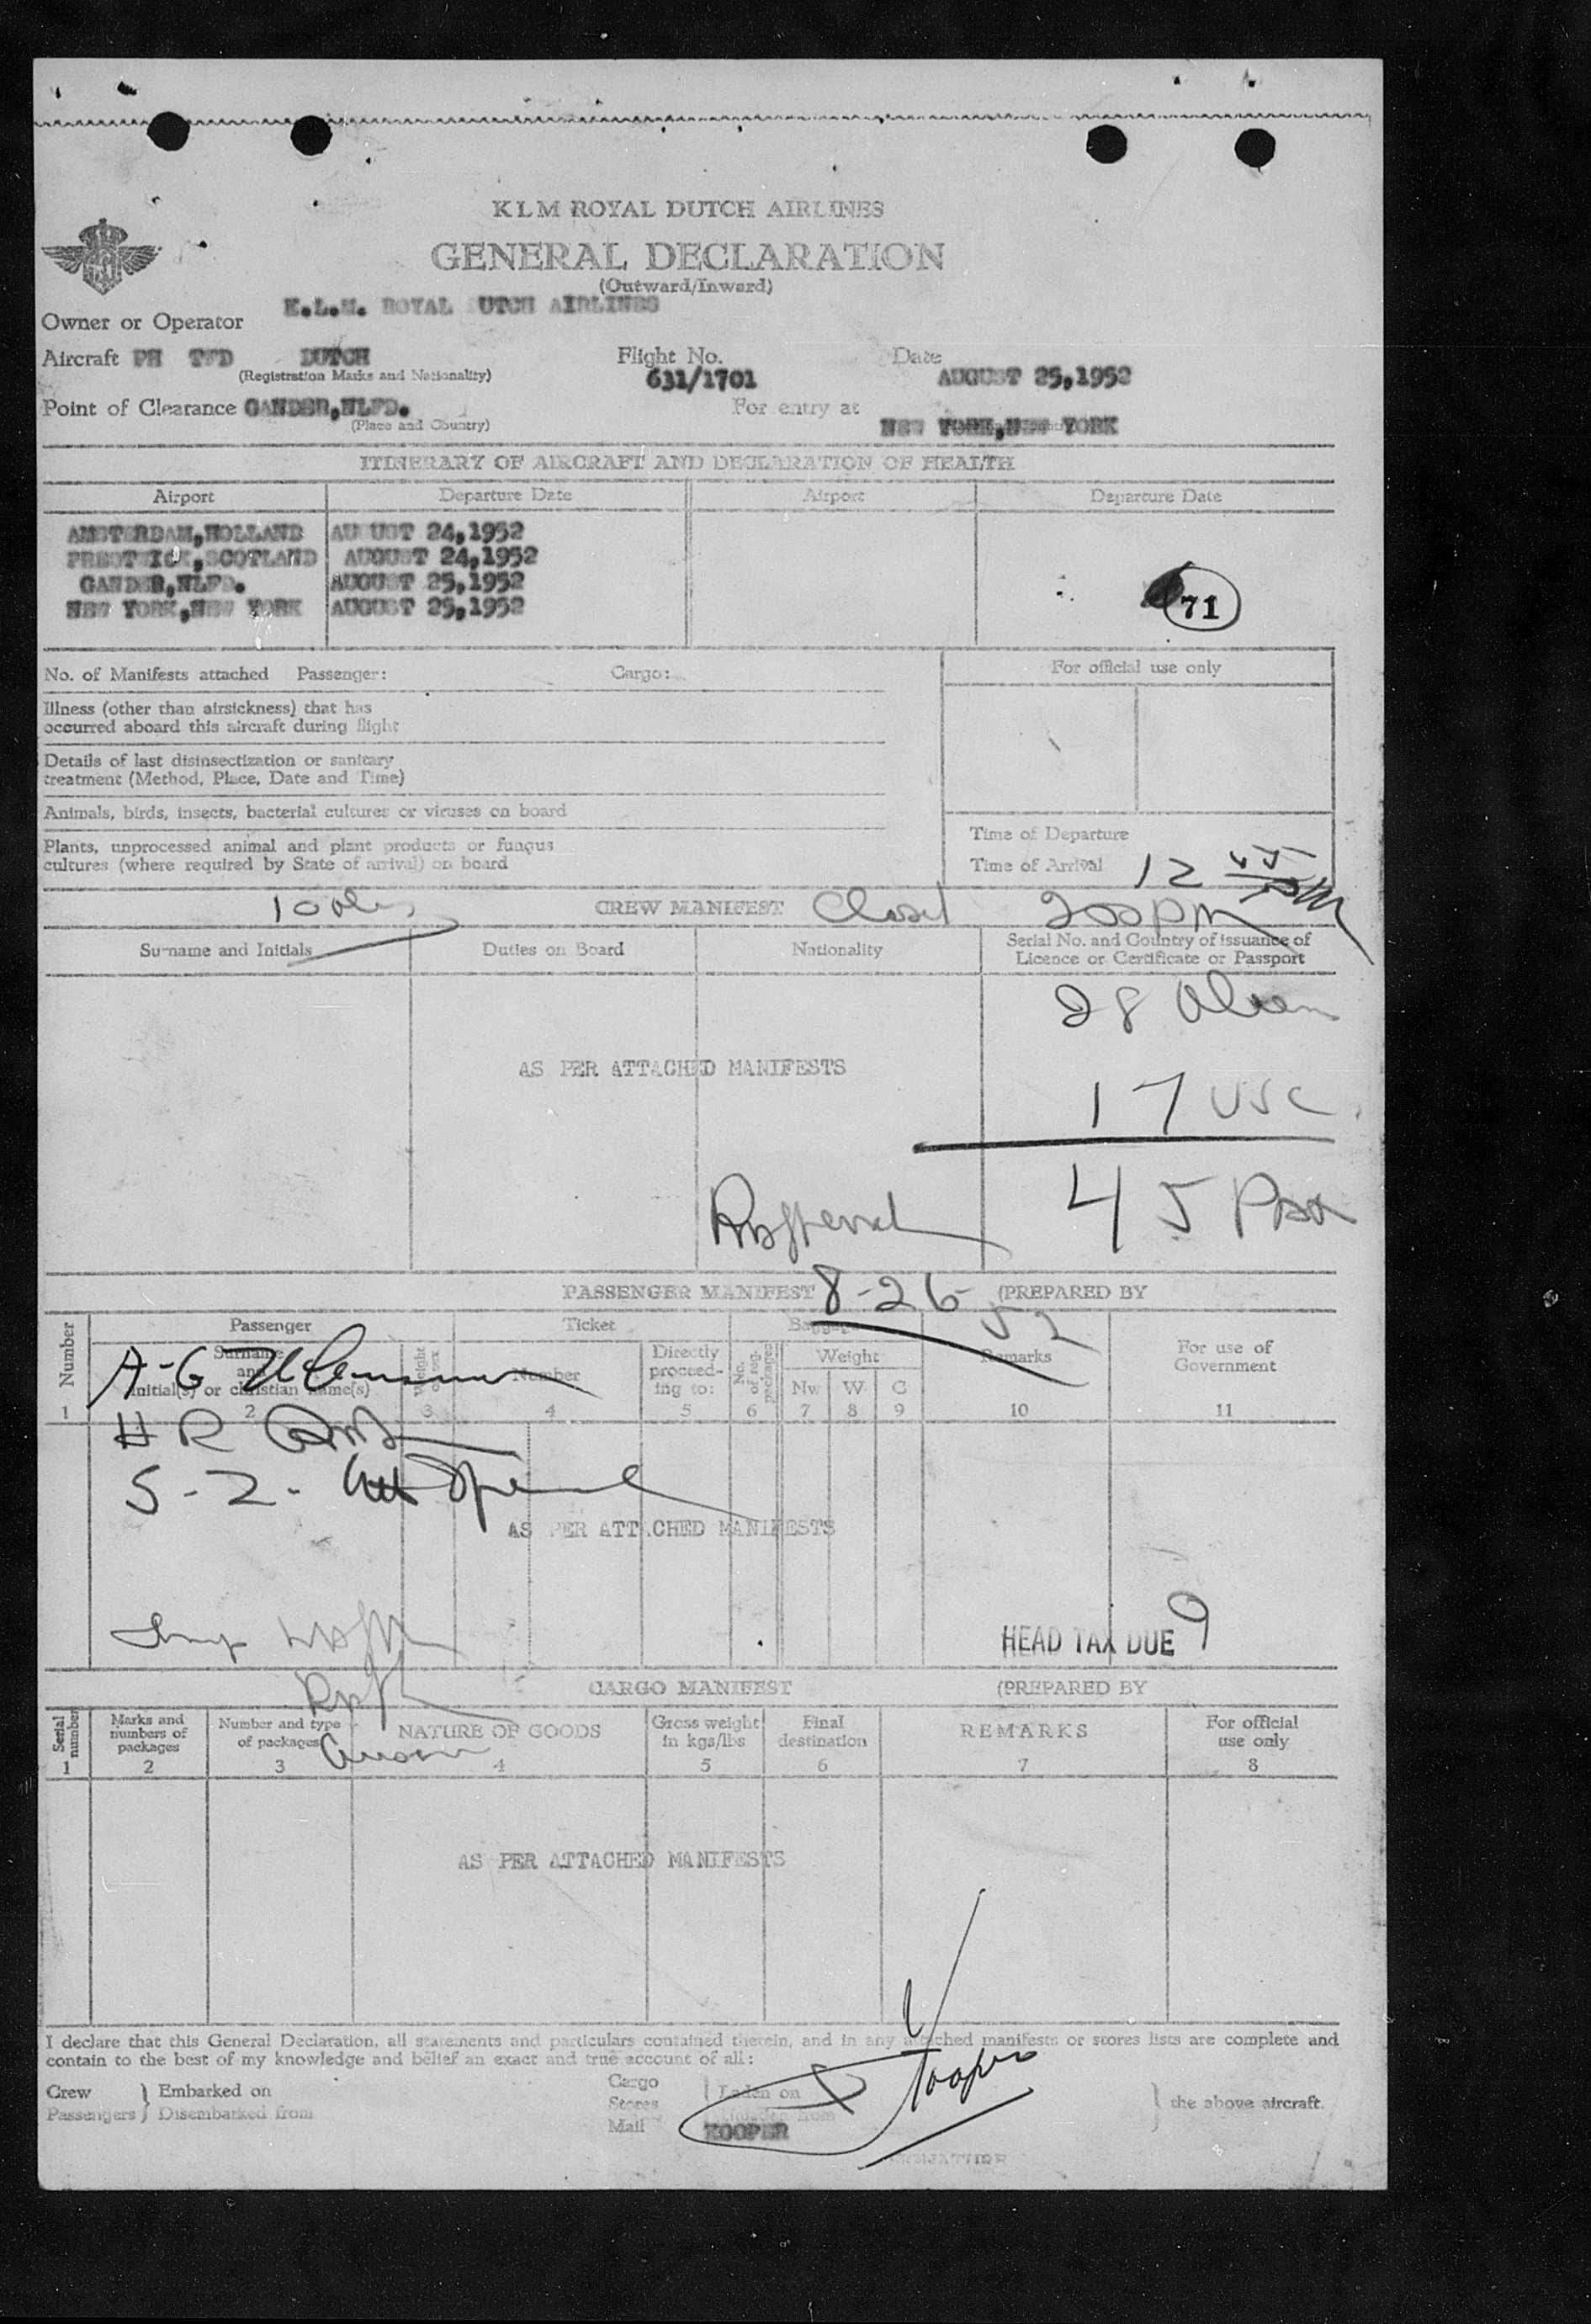 KLM ROYAL DUTCH AIRLINES
GENERAL DECLARATION
(Outward/Inward)
K.L.M. ROYAL DUTCH AIRLINES
Owner or Operator
Aircraft PH TFD DUTCH
(Registration Marks and Nationality)
Flight No.
631/1701
Date
AUGUST 25,1952
Point of Clearance GANDER,NLFD.
(Place and Country)
For entry at
NEW YORK,NEW YORK
ITINERARY OF AIRCRAFT AND DECLARATION OF HEALTH
Airport Departure Date Airport Departure Date
AMSTERDAM,HOLLAND AUGUST 24,1952
PRESTWICK,SCOTLAND AUGUST 24,1952
GANDER,NLFD. AUGUST 25,1952
NEW YORK,NEW YORK AUGUST 25,1952
71
No. of Manifests attached Passenger: Cargo:
For official use only
Illness (other than airsickness) that has
occurred aboard this aircraft during flight
Details of last disinsectization or sanitary
treatment (Method, Place, Date and Time)
Animals, birds, insects, bacterial cultures or viruses on board
Plants, unprocessed animal and plant products or fungus
cultures (where required by State of arrival) on board
Time of Departure
Time of Arrival 12 45 PM
10
CREW MANIFEST Closed 200 PM
Surname and Initials
Duties on Board
Nationality
Serial No. and Country of issuance of
Licence or Certificate or Passport
28 Aliens
AS PER ATTACHED MANIFESTS
17 USC
45 Pax
PASSENGER MANIFEST 8-26-52 (PREPARED BY
Number
Passenger
Ticket
Baggage
Surname
and
initial(s) or christian name(s)
Number
Directly
proceed-
ing to:
No.
of reg.
packages
Weight
Nw W C
Remarks
For use of
Government
1 2 3 4 5 6 7 8 9 10 11
A-G
H R
S-Z-
AS PER ATTACHED MANIFESTS
HEAD TAX DUE 9
CARGO MANIFEST (PREPARED BY
Serial
number
Marks and
numbers of
packages
Number and type
of packages
NATURE OF GOODS
Gross weight
in kgs/lbs
Final
destination
REMARKS
For official
use only
1 2 3 4 5 6 7 8
AS PER ATTACHED MANIFESTS
I declare that this General Declaration, all statements and particulars contained therein, and in any attached manifests or stores lists are complete and
contain to the best of my knowledge and belief an exact and true account of all:
Crew
Passengers
Embarked on
Disembarked from
Cargo
Stores
Mail
Laden on
the above aircraft.
KOOPER
Kooper
SIGNATURE